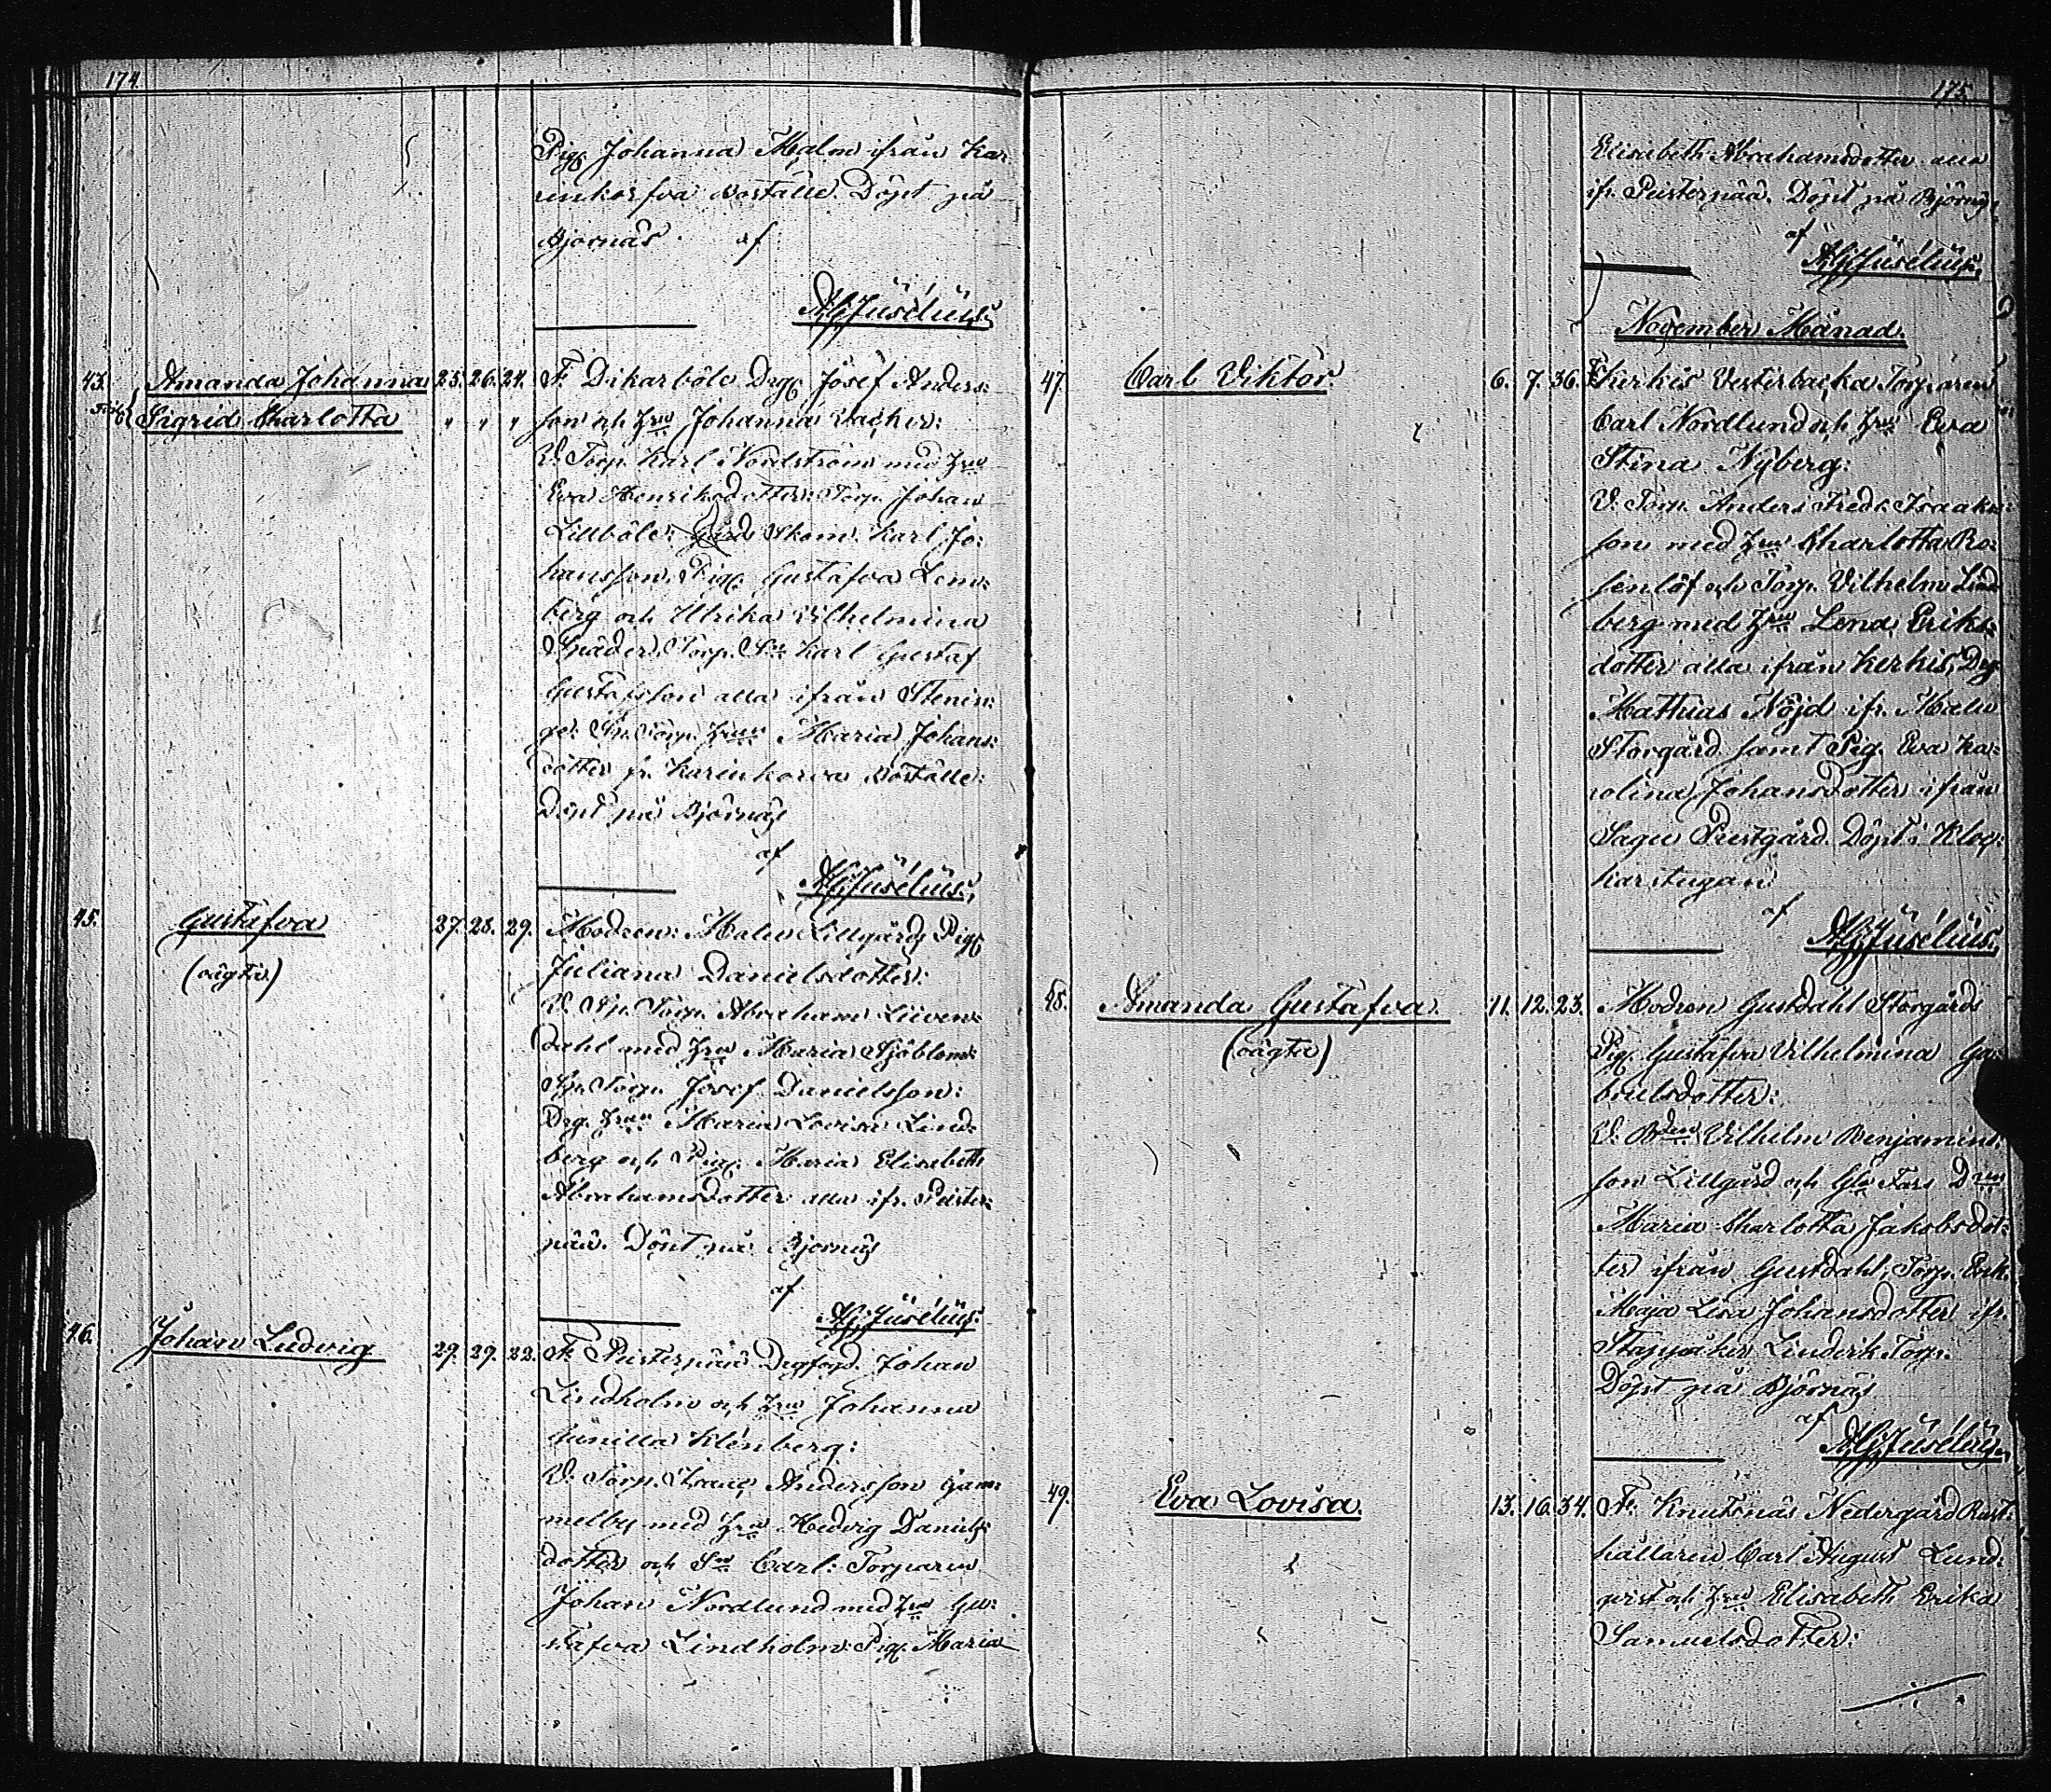 174.
Pig. Johanna Malm ifrån Ka-
rinkorfva Boställe. Döpt på
Björnäs af
AGJusélius.
43. Amanda Johanna 25. 26. 24. F. Dikarböle Drg. Josef Anders:
Sigrid Charlotta " " " son och Hru Johanna Backer:
V. Torp. Karl Nordström med Hru
Eva Henriksdotter: Torp. Johan
Lillböle: Skom. Karl Jo:
hansson, Pig. Gustafva Lem-
berg och Ulrika Vilhelmina
Torp. Sn Karl Gustaf
Gustafsson alla ifrån Stenin:
ge: Sp. Torp. Hrun Maria Johans:
dotter fr. Karinkorva Boställe:
Döpt på Björnäs
af
AGJusélius.
45. Gustafva 27. 28. 29. Modren: Malu Lillgårds Pig.
(oägta) Juliana Danielsdotter:
V. Sp. Torp. Abraham Liiven-
dahl med Hru Maria Sjöblom:
Sp. Torp. Josef Danielsson:
Drg. Hrun Maria Lovisa Lind-
berg och Pig. Maria Elisabeth
Abrahamsdotter alla ifr. Peister-
pää. Döpt på Björnäs
af
AGJusélius.
46. Johan Ludvig 29. 29. 22. F. Peisterpää Drgfogd. Johan
Lindholm och Hru Johanna
Gunilla Klénberg:
V. Torp. Isaac Andersson Gam-
melby med Hru Hedvig Daniels-
dotter och Sn Carl: Torparen
Johan Nordlund med Hru Gu:
stafva Lindholm: Pig. Maria
175.
Elisabeth Abrahamsdotter alla
ifr. Peisterpää. Döpt på Björnäs
af
AGJusélius.
November Månad.
47. Carl Viktor. 6. 7. 36. F. Kerkis Vesterbacka Torparen
Carl Nordlund och Hru Eva
Stina Nyberg:
V. Torp. Anders Fredr. Isaaks-
son med Hru Charlotta Ro:
senlöf och Torp. Vilhelm Lind
berg med Hru Lena Eriks:
dotter alla ifrån Kerkis, Drg.
Mathias Nöjd ifr. Malu
Storgård samt Pig. Eva Ka:
rolina Johansdotter ifrån
Sagu Prestgård. Döpt i Kloc:
karstugan
af
AGJusélius.
48. Amanda Gustafva. 11. 12. 23. Modren Gustdahl Storgårds
(oägta) Pig. Gustafva Vilhelmina Ga-
brielsdotter:
V. Bden Vilhelm Benjamins:
son Lillgård och Gla Fars Dren
Maria Charlotta Jakobsdot:
ter ifrån Gustdahl, Torp. Enk.
Maja Lisa Johansdotter ifr.
Torp.
Döpt på Björnäs
af
AGJusélius
49. Eva Lovisa. 13. 16. 34. F. Knutsnäs Nedergård Rust:
hållaren Carl August Lund:
qvist och Hru Elisabeth Erika
Samuelsdotter: